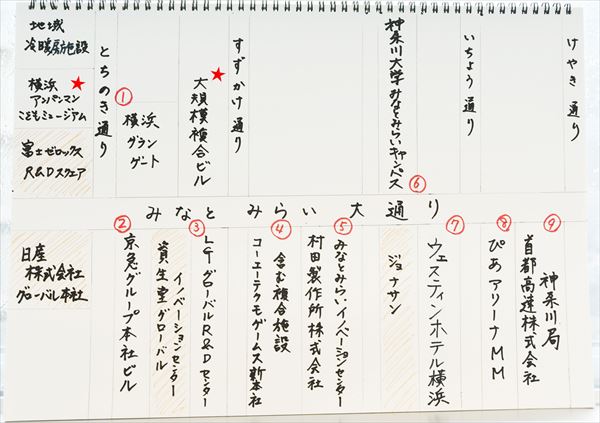 地域
冷暖房施設
横浜 ★
アンパンマン
こどもミュージアム
富士ゼロックス
R&Dスクェア
とちのき通り
①
横浜
グラン
ゲート
★
大規模複合ビル
すずかけ通り
神奈川大学みなとみらいキャンパス
⑥
いちょう通り
けやき通り
みなとみらい大通り
日産
株式会社
グローバル本社
②
京急グループ本社ビル
資生堂グローバル
イノベーションセンター
③
LGグローバルR&Dセンター
④
コーエーテクモゲームス新本社
含む複合施設
⑤
村田製作所株式会社
みなとみらいイノベーションセンター
ジョナサン
⑦
ウェスティンホテル横浜
⑧
ぴあアリーナMM
⑨
首都高速株式会社
神奈川局